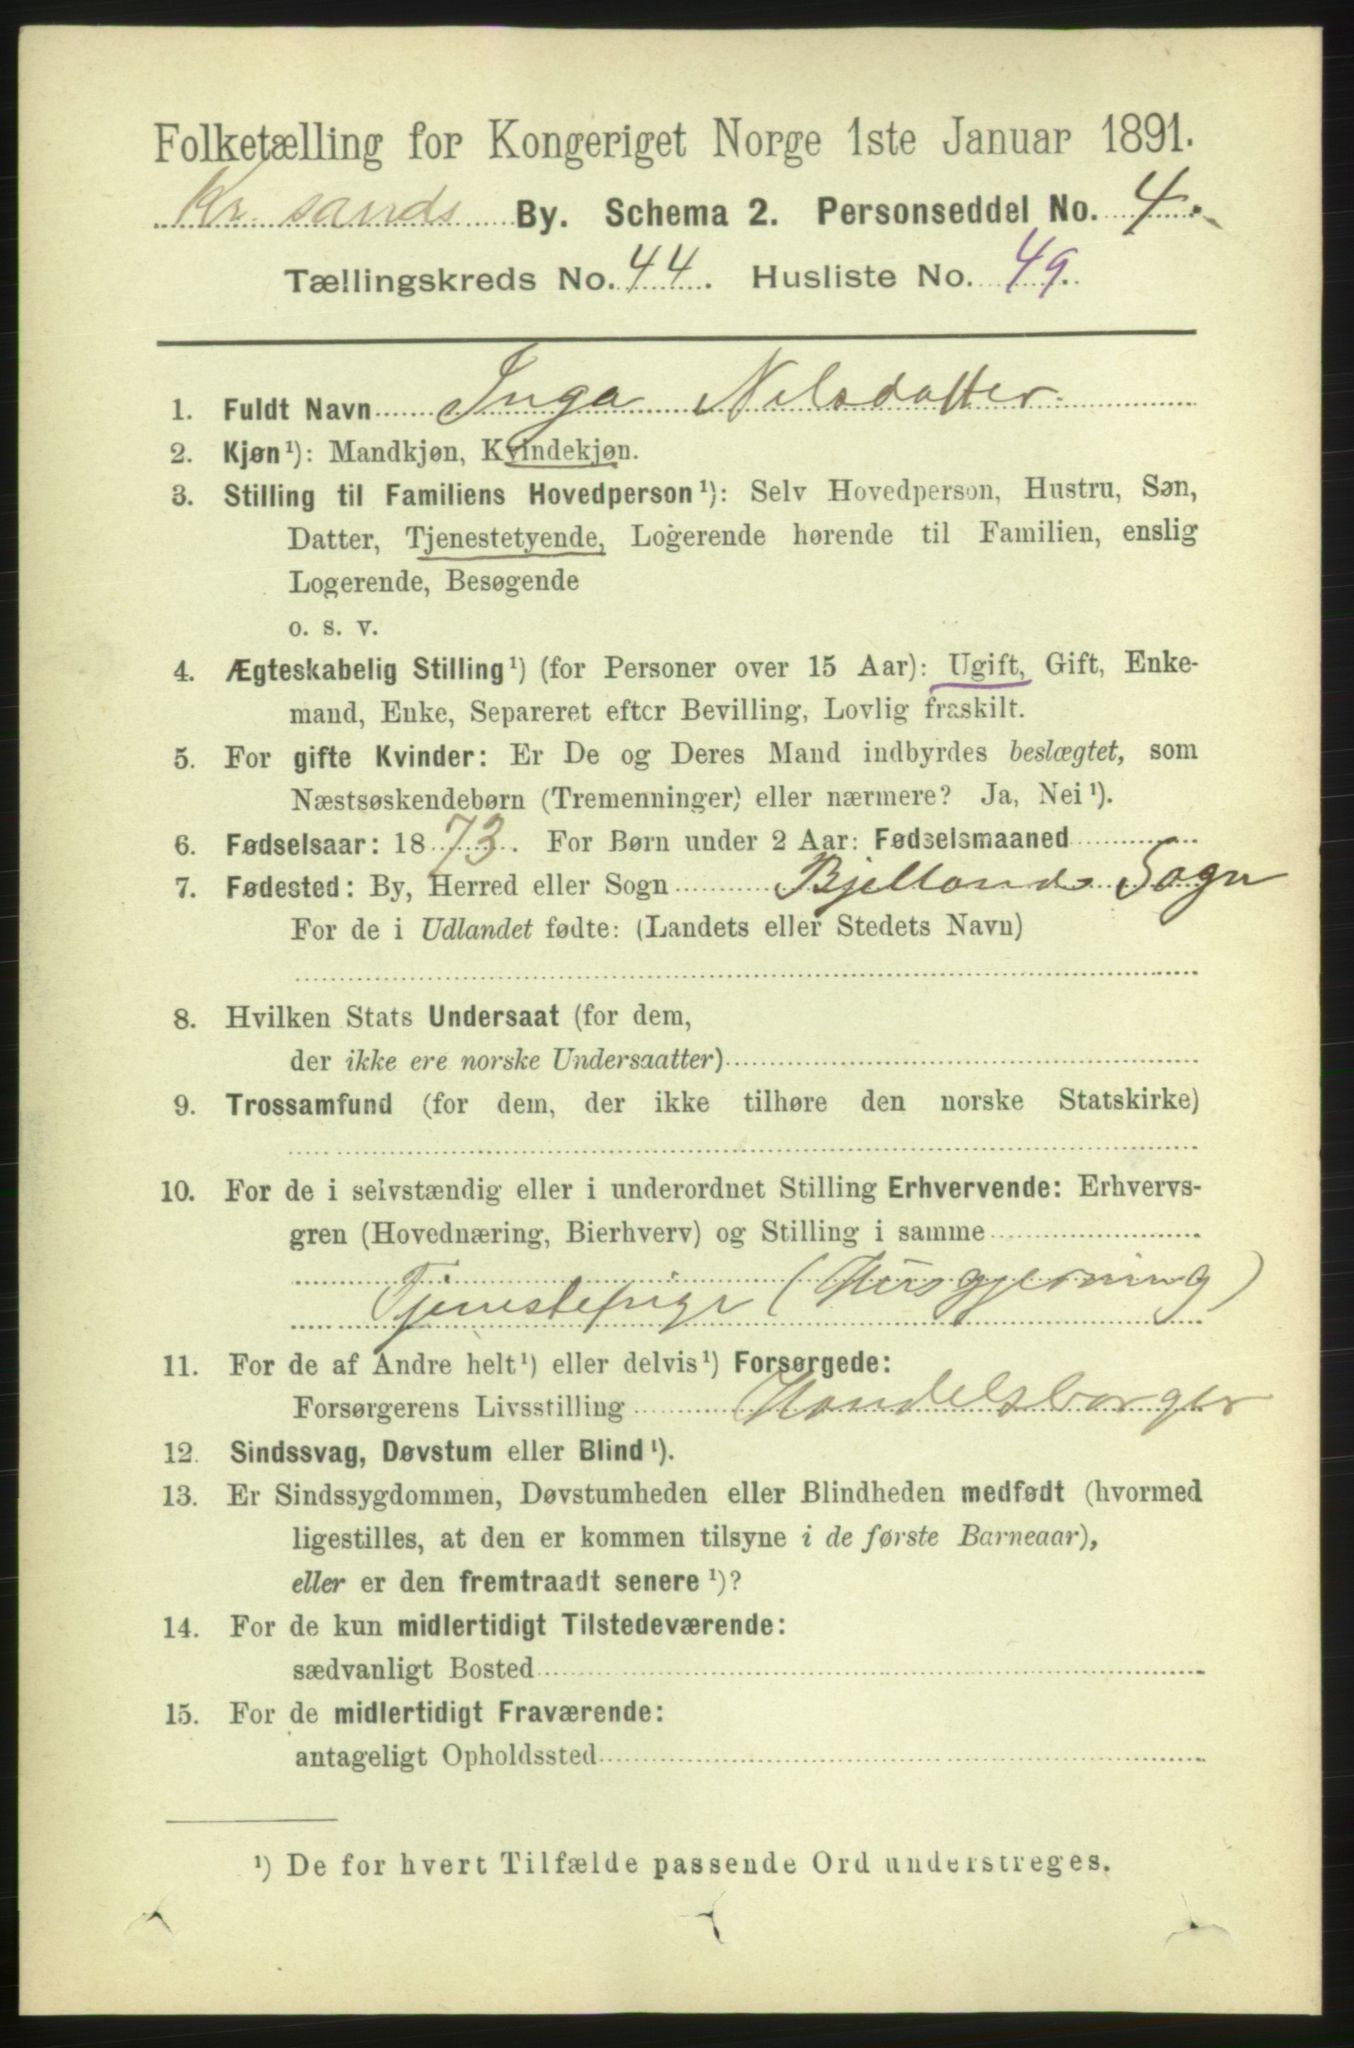 Folketælling for Kongeriget Norge 1ste Januar 1891.
Kr.sands By. Schema 2. Personseddel No. 4.
Tællingskreds No. 44. Husliste No. 49.
1. Fuldt Navn Inga Nilsdatter
2. Kjøn¹): Mandkjøn, Kvindekjøn.
3. Stilling til Familiens Hovedperson¹): Selv Hovedperson, Hustru, Søn,
Datter, Tjenestetyende, Logerende hørende til Familien, enslig
Logerende, Besøgende
o. s. v.
4. Ægteskabelig Stilling¹) (for Personer over 15 Aar): Ugift, Gift, Enke-
mand, Enke, Separeret efter Bevilling, Lovlig fraskilt.
5. For gifte Kvinder: Er De og Deres Mand indbyrdes beslægtet, som
Næstsøskendebørn (Tremenninger) eller nærmere? Ja, Nei¹).
6. Fødselsaar: 1873. For Børn under 2 Aar: Fødselsmaaned
7. Fødested: By, Herred eller Sogn Bjellands Sogn
For de i Udlandet fødte: (Landets eller Stedets Navn)
8. Hvilken Stats Undersaat (for dem,
der ikke ere norske Undersaatter)
9. Trossamfund (for dem, der ikke tilhøre den norske Statskirke)
10. For de i selvstændig eller i underordnet Stilling Erhvervende: Erhvervs-
gren (Hovednæring, Bierhverv) og Stilling i samme
Tjenestepige (Husgjerning)
11. For de af Andre helt¹) eller delvis¹) Forsørgede:
Forsørgerens Livsstilling Handelsborger
12. Sindssvag, Døvstum eller Blind¹).
13. Er Sindssygdommen, Døvstumheden eller Blindheden medfødt (hvormed
ligestilles, at den er kommen tilsyne i de første Barneaar),
eller er den fremtraadt senere¹)?
14. For de kun midlertidigt Tilstedeværende:
sædvanligt Bosted
15. For de midlertidigt Fraværende:
antageligt Opholdssted
¹) De for hvert Tilfælde passende Ord understreges.